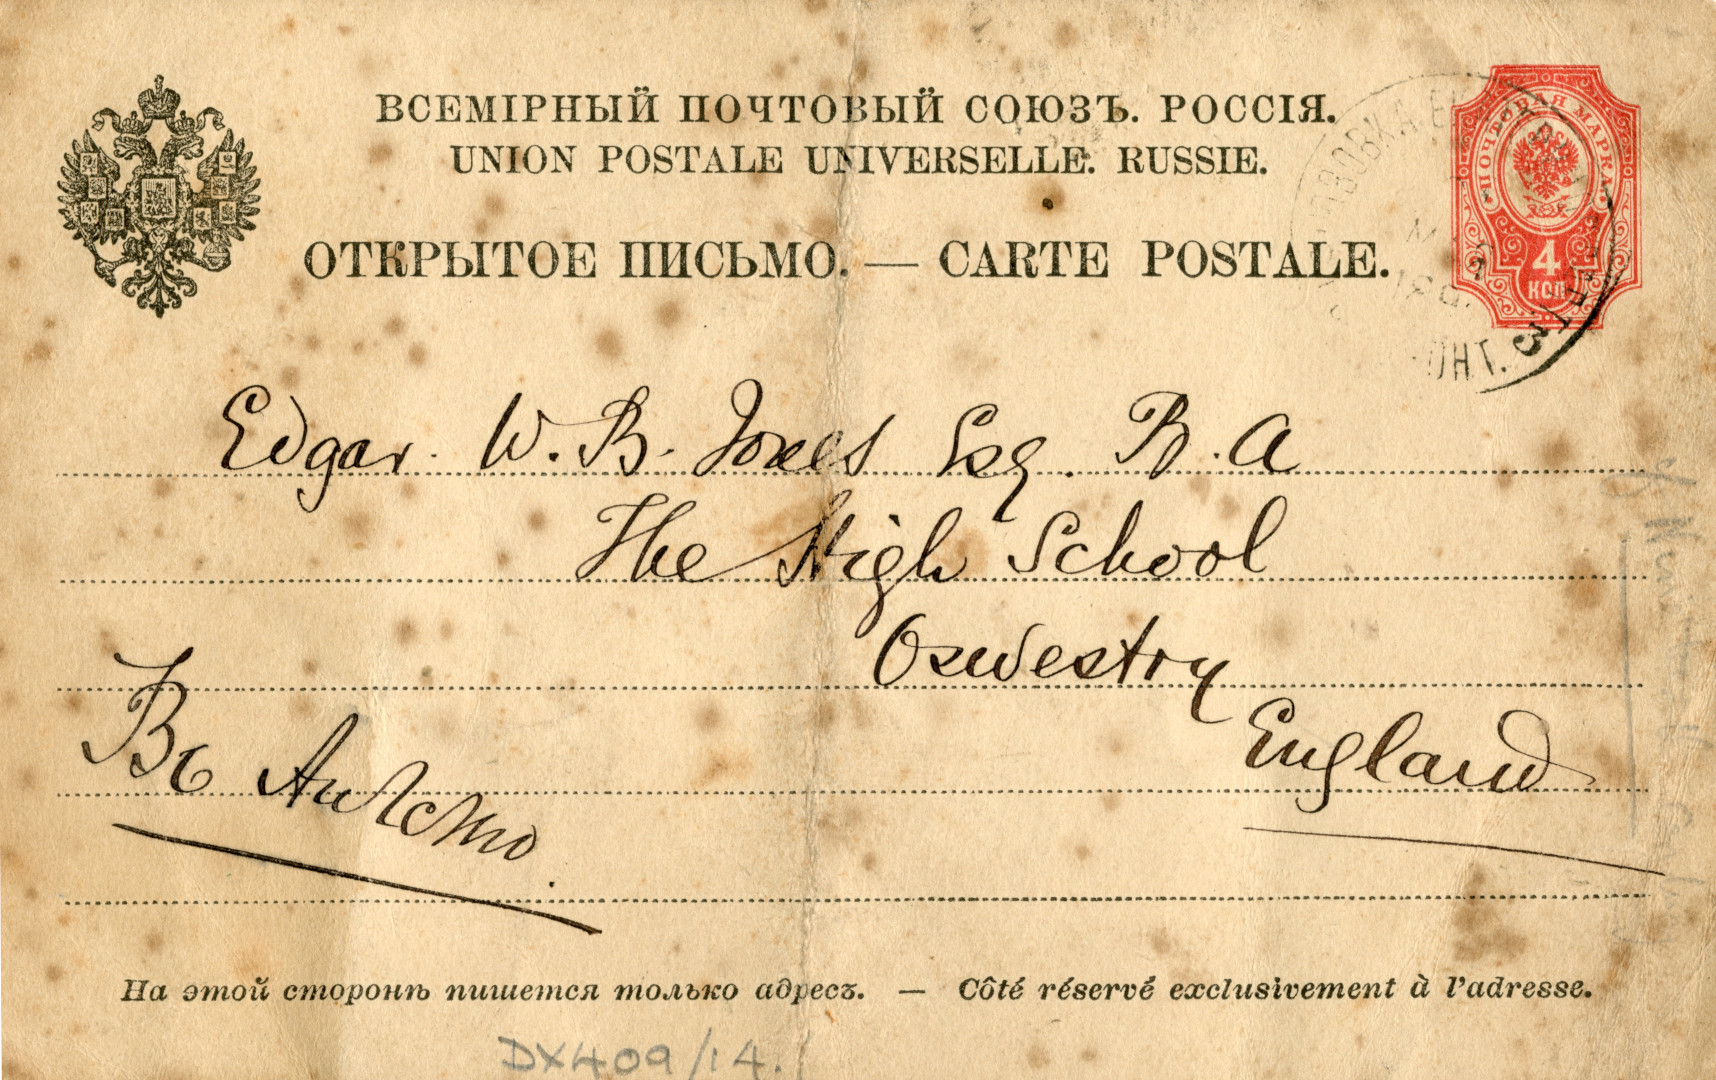 ВСЕМІРНЫЙ ПОЧТОВЫЙ СОЮЗЪ. РОССІЯ.
UNION POSTALE UNIVERSELLE. RUSSIE.
ОТКРЫТОЕ ПИСЬМО. — CARTE POSTALE.
ПОЧТОВАЯ МАРКА
4
КОП
Edgar. W. B. Jones Esq. B. A
The High School
Oswestry
England
Въ Англію.
На этой сторонѣ пишется только адресъ. — Côté réservé exclusivement à l'adresse.
DX409/14.